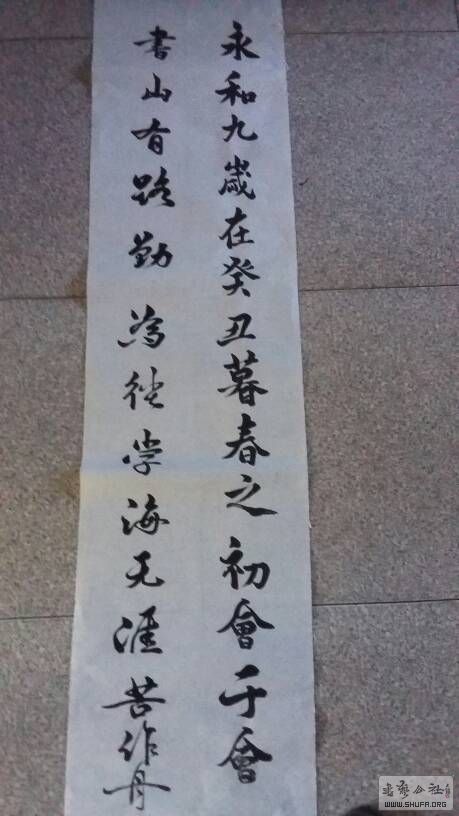 永和九歲在癸丑暮春之初會于會
書山有路勤為徑学海无涯苦作舟
書藝公社
WWW.SHUFA.ORG